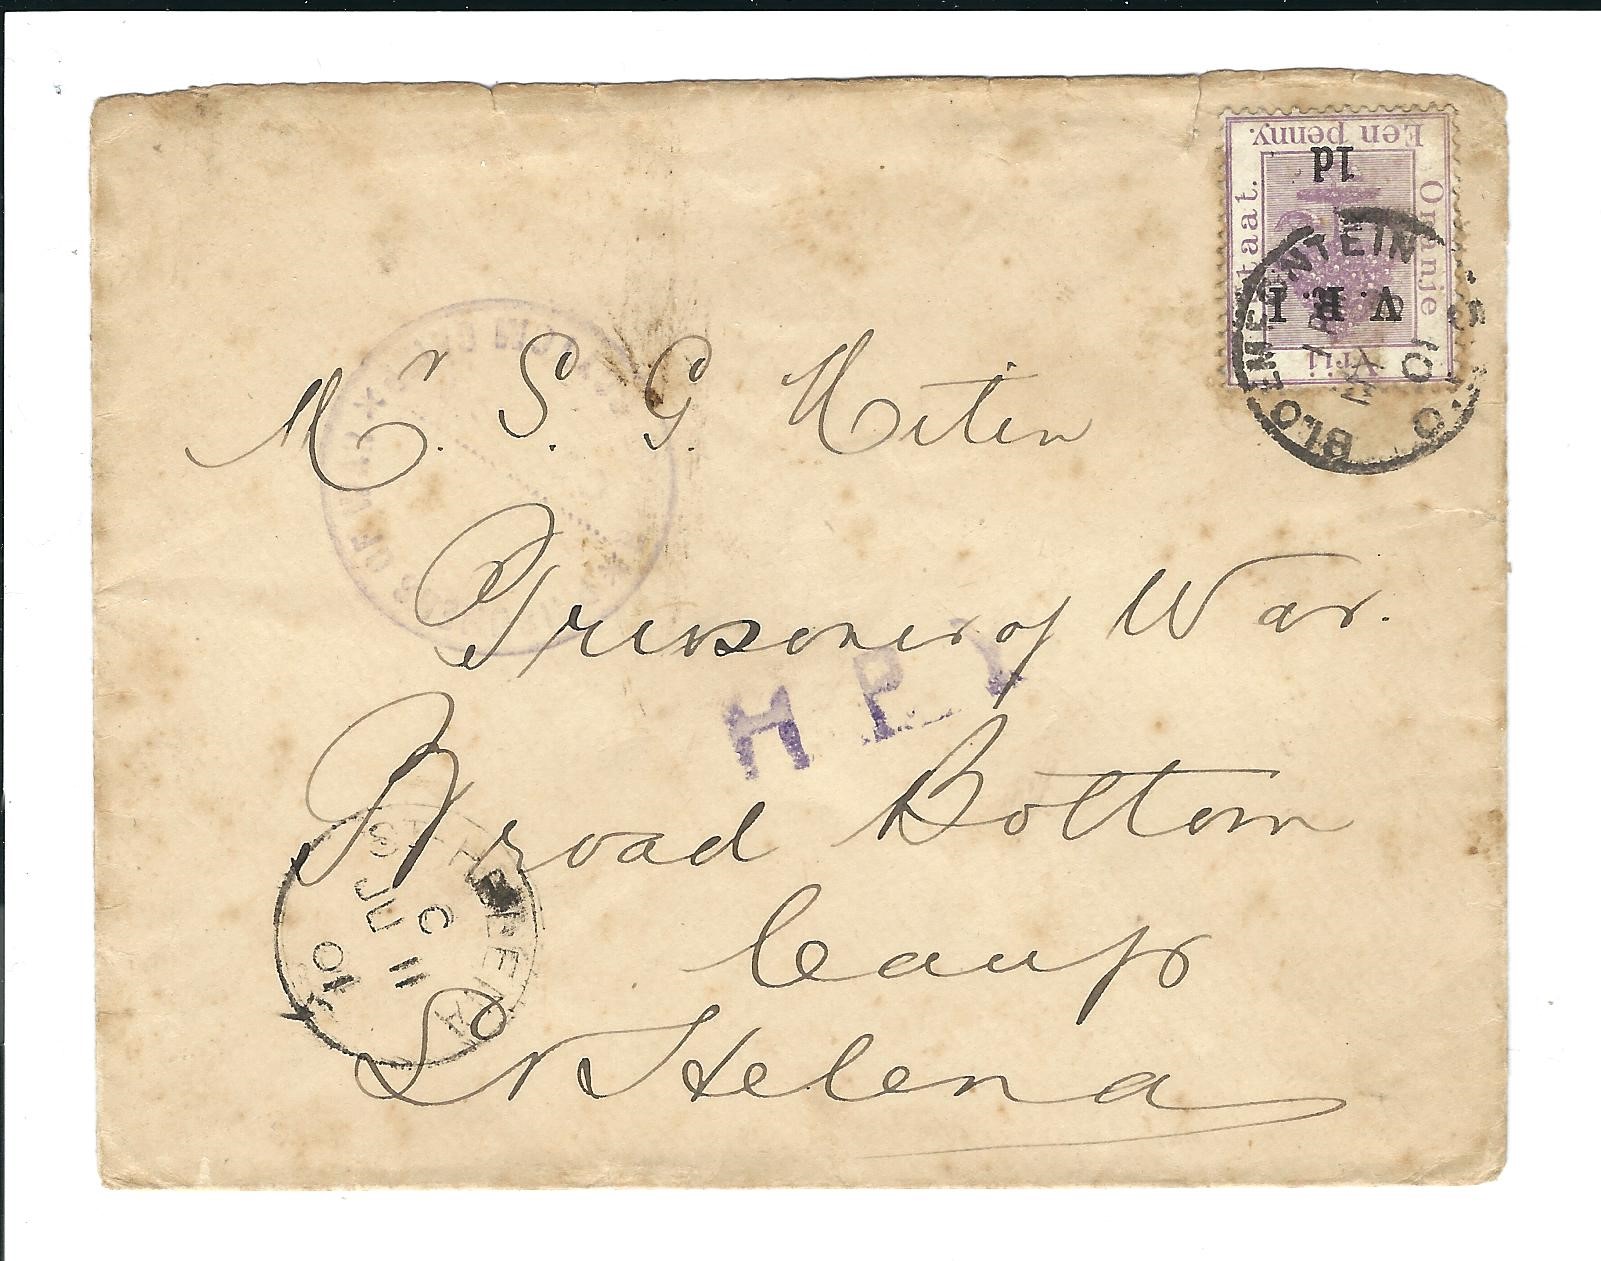 Een penny.
1d
Oranje
Vrij
Staat.
V. R. I
BLOEMFONTEIN
Mr. S. G.
Prisoner of War.
H P
Broad Bottom
Camp
St Helena
ST HELENA
C
JU 11
01